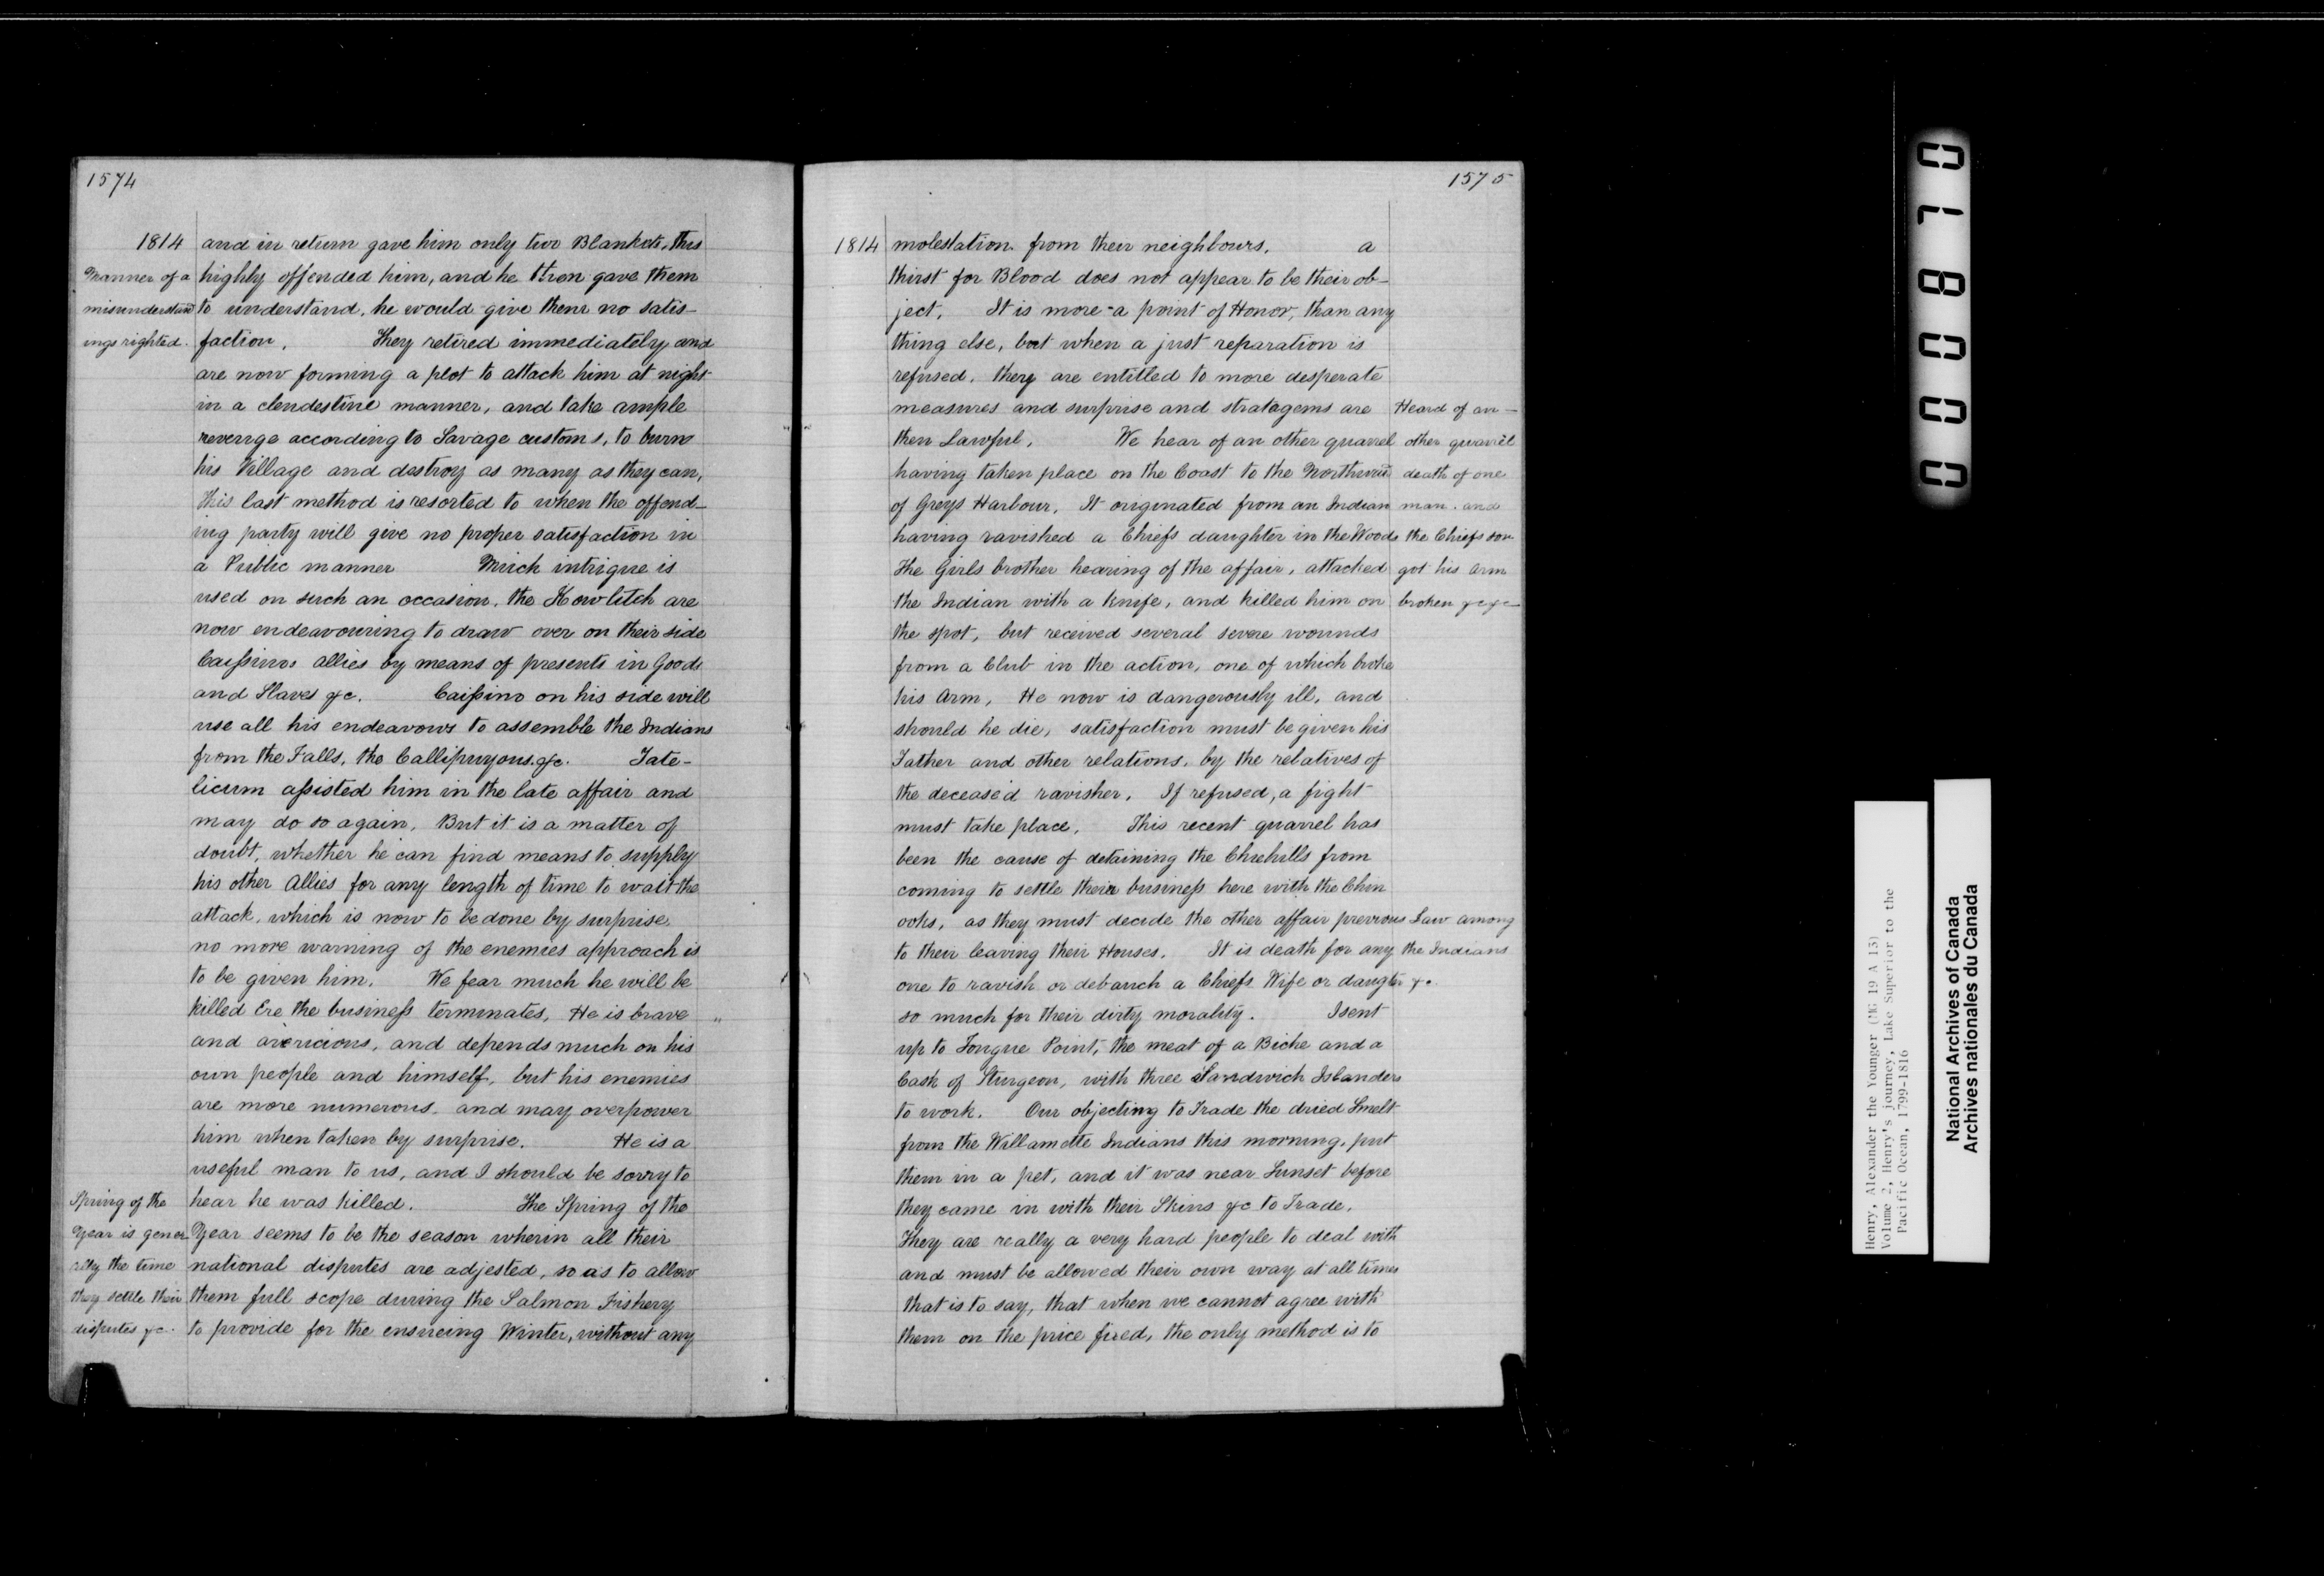 1574
1814
Manner of a
misunderstand
ings righted.
and in return gave him only two Blankets, this
highly offended him, and he then gave them
to understand, he would give them no satis-
faction. They retired immediately and
are now forming a plot to attack him at night
in a clendestine manner, and take ample
revenge according to Savage customs, to burn
his Village and destroy as many as they can,
this last method is resorted to when the offend-
ing party will give no proper satisfaction in
a Public manner Much intrigue is
used on such an occasion, the Kowlitch are
now endeavouring to draw over on their side
Caissinos Allies by means of presents in Goods
and Slaves &c. Caissino on his side will
use all his endeavours to assemble the Indians
from the Falls, the Callipuyous. &c. Tate-
licum assisted him in the late affair and
may do so again, But it is a matter of
doubt, whether he can find means to supply
his other Allies for any length of time to wait the
attack, which is now to be done by surprise,
no more warning of the enemies approach is
to be given him. We fear much he will be
killed Ere the business terminates, He is brave
and avericious, and depends much on his
own people and himself, but his enemies
are more numerous and may overpower
him when taken by surprise. He is a
useful man to us, and I should be sorry to
hear he was killed. The Spring of the
Year seems to be the season wherin all their
national disputes are adjested, so as to allow
them full scope during the Salmon Fishery
to provide for the ensueing Winter, without any
Spring of the
Year is gener
ally the time
they settle their
disputes &c.
1575
1814
molestation from their neighbours. a
thirst for Blood does not appear to be their ob-
ject. It is more a point of Honor, than any
thing else, but when a just reparation is
refused, they are entitled to more desperate
measures and surprise and stratagems are
then Lawful. We hear of an other quarrel
having taken place on the Coast to the Northward
of Greys Harbour. It originated from an Indian
having ravished a Chiefs daughter in the Woods
the Girls brother hearing of the affair, attacked
the Indian with a knife, and killed him on
the spot, but received several severe wounds
from a Club in the action, one of which broke
his Arm, He now is dangerously ill, and
should he die, satisfaction must be given his
Father and other relations, by the relatives of
the deceased ravisher. If refused, a fight
must take place. This recent quarrel has
been the cause of detaining the Chiehills from
coming to settle their business here with the Chin
ooks, as they must decide the other affair previous
to their leaving their Houses. It is death for any
one to ravish or debauch a Chiefs Wife or daugter
so much for their dirty morality. I sent
up to Tongue Point, the meat of a Biche and a
Cask of Sturgeon, with three Sandwich Islanders
to work. Our objecting to Trade the dried Smelt
from the Willamette Indians this morning, put
them in a pet, and it was near Sunset before
they came in with their Skins &c to Trade.
They are really a very hard people to deal with
and must be allowed their own way at all times
that is to say, that when we cannot agree with
them on the price fixed, the only method is to
Heard of an-
other quarrel
death of one
man. and
the Chiefs son
got his arm
broken &c &c
Law among
the Indians
&c.
00087 0
Henry, Alexander the Younger (MG 19 A 13)
Volume 2, Henry's journey, Lake Superior to the
Pacific Ocean, 1799-1816
National Archives of Canada
Archives nationales du Canada